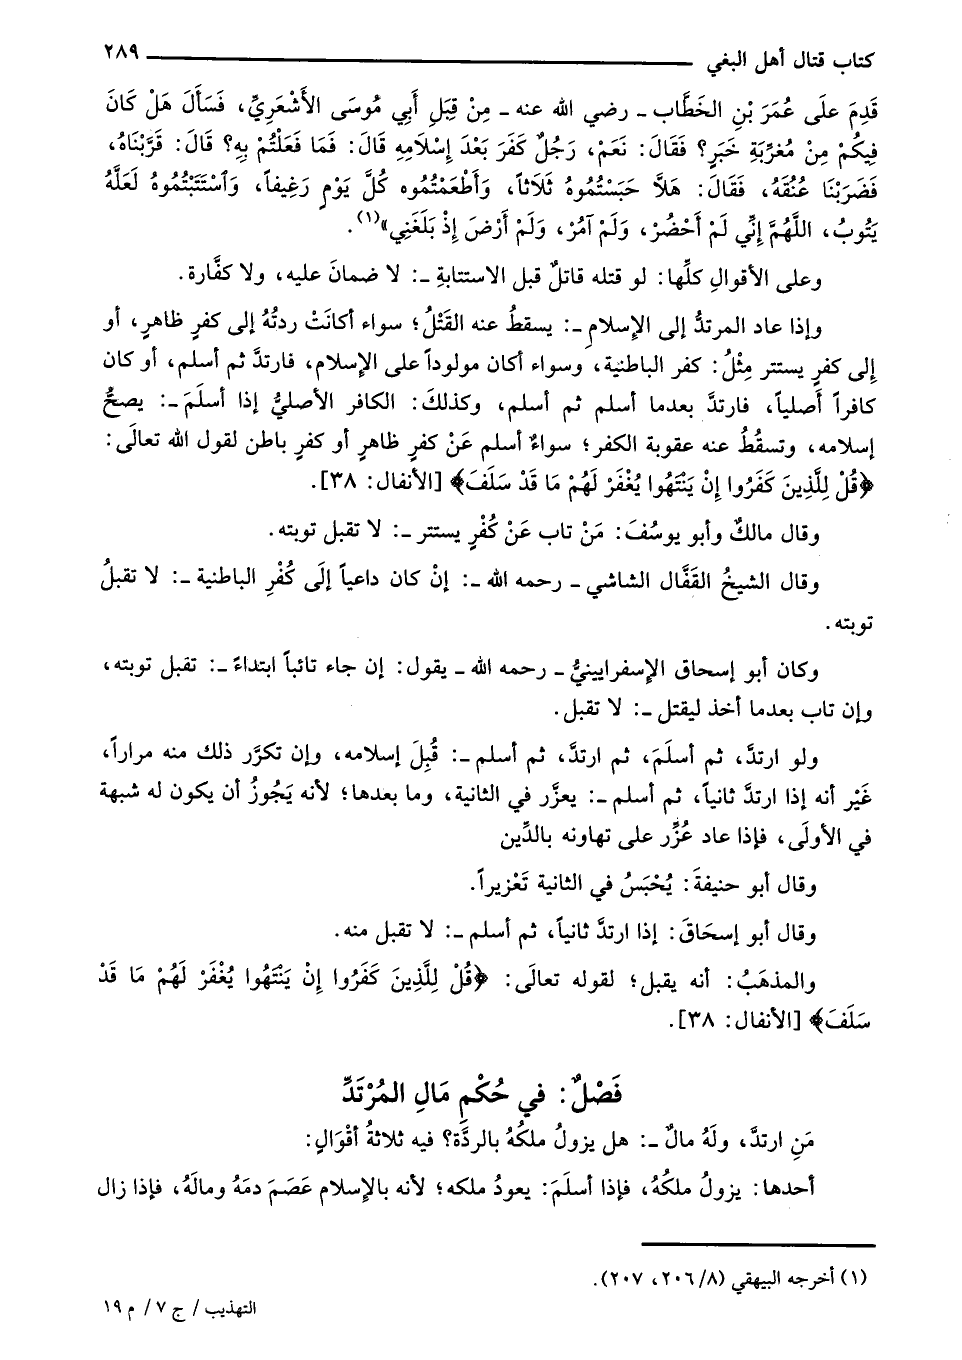 كتاب قتال أهل البغي ٢٨٩
قَدِمَ علَى عُمَرَ بْنِ الخَطَّاب ـ رضي الله عنه ـ مِنْ قِبَلِ أَبِي مُوسَى الأَشْعَرِيِّ، فَسَأَلَ هَلْ كَانَ
فِيكُمْ مِنْ مُغَرِّبَةِ خَبَرٍ؟ فَقَالَ: نَعَمْ، رَجُلٌ كَفَرَ بَعْدَ إِسْلاَمِهِ قَالَ: فَمَا فَعَلْتُمْ بِهِ؟ قَالَ: قَرَّبْنَاهُ،
فَضَرَبْنَا عُنُقَهُ، فَقَالَ: هَلاَّ حَبَسْتُمُوهُ ثَلاَثاً، وَأَطْعَمْتُمُوه كُلَّ يَوْمٍ رَغِيفاً، وَاسْتَتَبْتُمُوهُ لَعَلَّهُ
يَتُوبُ، اللَّهُمَّ إِنِّي لَمْ أَحْضُرْ، وَلَمْ آمُرْ، وَلَمْ أَرْضَ إِذْ بَلَغَنِي»(١).
وعلى الأقوالِ كلِّها: لو قتله قاتلٌ قبل الاستتابةِ ـ: لا ضمانَ عليه، ولا كفَّارة.
وإذا عاد المرتدُّ إلى الإسلامِ ـ: يسقطُ عنه القَتْلُ؛ سواء أكانَتْ ردتُهُ إلى كفرٍ ظاهرٍ، أو
إلى كفرٍ يستتر مِثْلُ: كفر الباطنية، وسواء أكان مولوداً على الإسلام، فارتدَّ ثم أسلم، أو كان
كافراً أصلياً، فارتدَّ بعدما أسلم ثم أسلم، وكذلكَ: الكافر الأصليُّ إذا أسلَمَ ـ: يصحُّ
إسلامه، وتسقُطُ عنه عقوبة الكفر؛ سواءٌ أسلم عَنْ كفرٍ ظاهرٍ أو كفرٍ باطن لقول الله تعالَى:
﴿قُلْ لِلَّذِينَ كَفَرُوا إِنْ يَنْتَهُوا يُغْفَرْ لَهُمْ مَا قَدْ سَلَفَ﴾ [الأنفال: ٣٨].
وقال مالكٌ وأبو يوسُفَ: مَنْ تاب عَنْ كُفْرٍ يستتر ـ: لا تقبل توبته.
وقال الشيخُ القَفَّال الشاشي ـ رحمه الله ـ: إنْ كان داعياً إلَى كُفْرِ الباطنية ـ: لا تقبلُ
توبته.
وكان أبو إسحاق الإسفرايينيُّ ـ رحمه الله ـ يقول: إن جاء تائباً ابتداءً ـ: تقبل توبته،
وإن تاب بعدما أخذ ليقتل ـ: لا تقبل.
ولو ارتدَّ، ثم أسلَمَ، ثم ارتدَّ، ثم أسلم ـ: قُبِلَ إسلامه، وإن تكرَّر ذلك منه مراراً،
غَيْر أنه إذا ارتدَّ ثانياً، ثم أسلم ـ: يعزَّر في الثانية، وما بعدها؛ لأنه يَجُوزُ أن يكون له شبهة
في الأولَى، فإذا عاد عُزِّر على تهاونه بالدِّين
وقال أبو حنيفةَ: يُحْبَسُ في الثانية تَعْزيراً.
وقال أبو إسحَاقَ: إذا ارتدَّ ثانياً، ثم أسلم ـ: لا تقبل منه.
والمذهَبُ: أنه يقبل؛ لقوله تعالَى: ﴿قُلْ لِلَّذِينَ كَفَرُوا إِنْ يَنْتَهُوا يُغْفَرْ لَهُمْ مَا قَدْ
سَلَفَ﴾ [الأنفال: ٣٨].
فَصْلٌ: في حُكْمِ مَالِ المُرْتَدِّ
مَنِ ارتدَّ، ولَهُ مالٌ ـ: هل يزولُ ملكُهُ بالردَّة؟ فيه ثلاثةُ أقْوَالٍ:
أحدها: يزولُ ملكُهُ، فإذا أسلَمَ: يعودُ ملكه؛ لأنه بالإسلام عَصَمَ دمَهُ ومالَهُ، فإذا زال
(١) أخرجه البيهقي (٢٠٦/٨، ٢٠٧).
التهذيب / ج ٧ / م ١٩